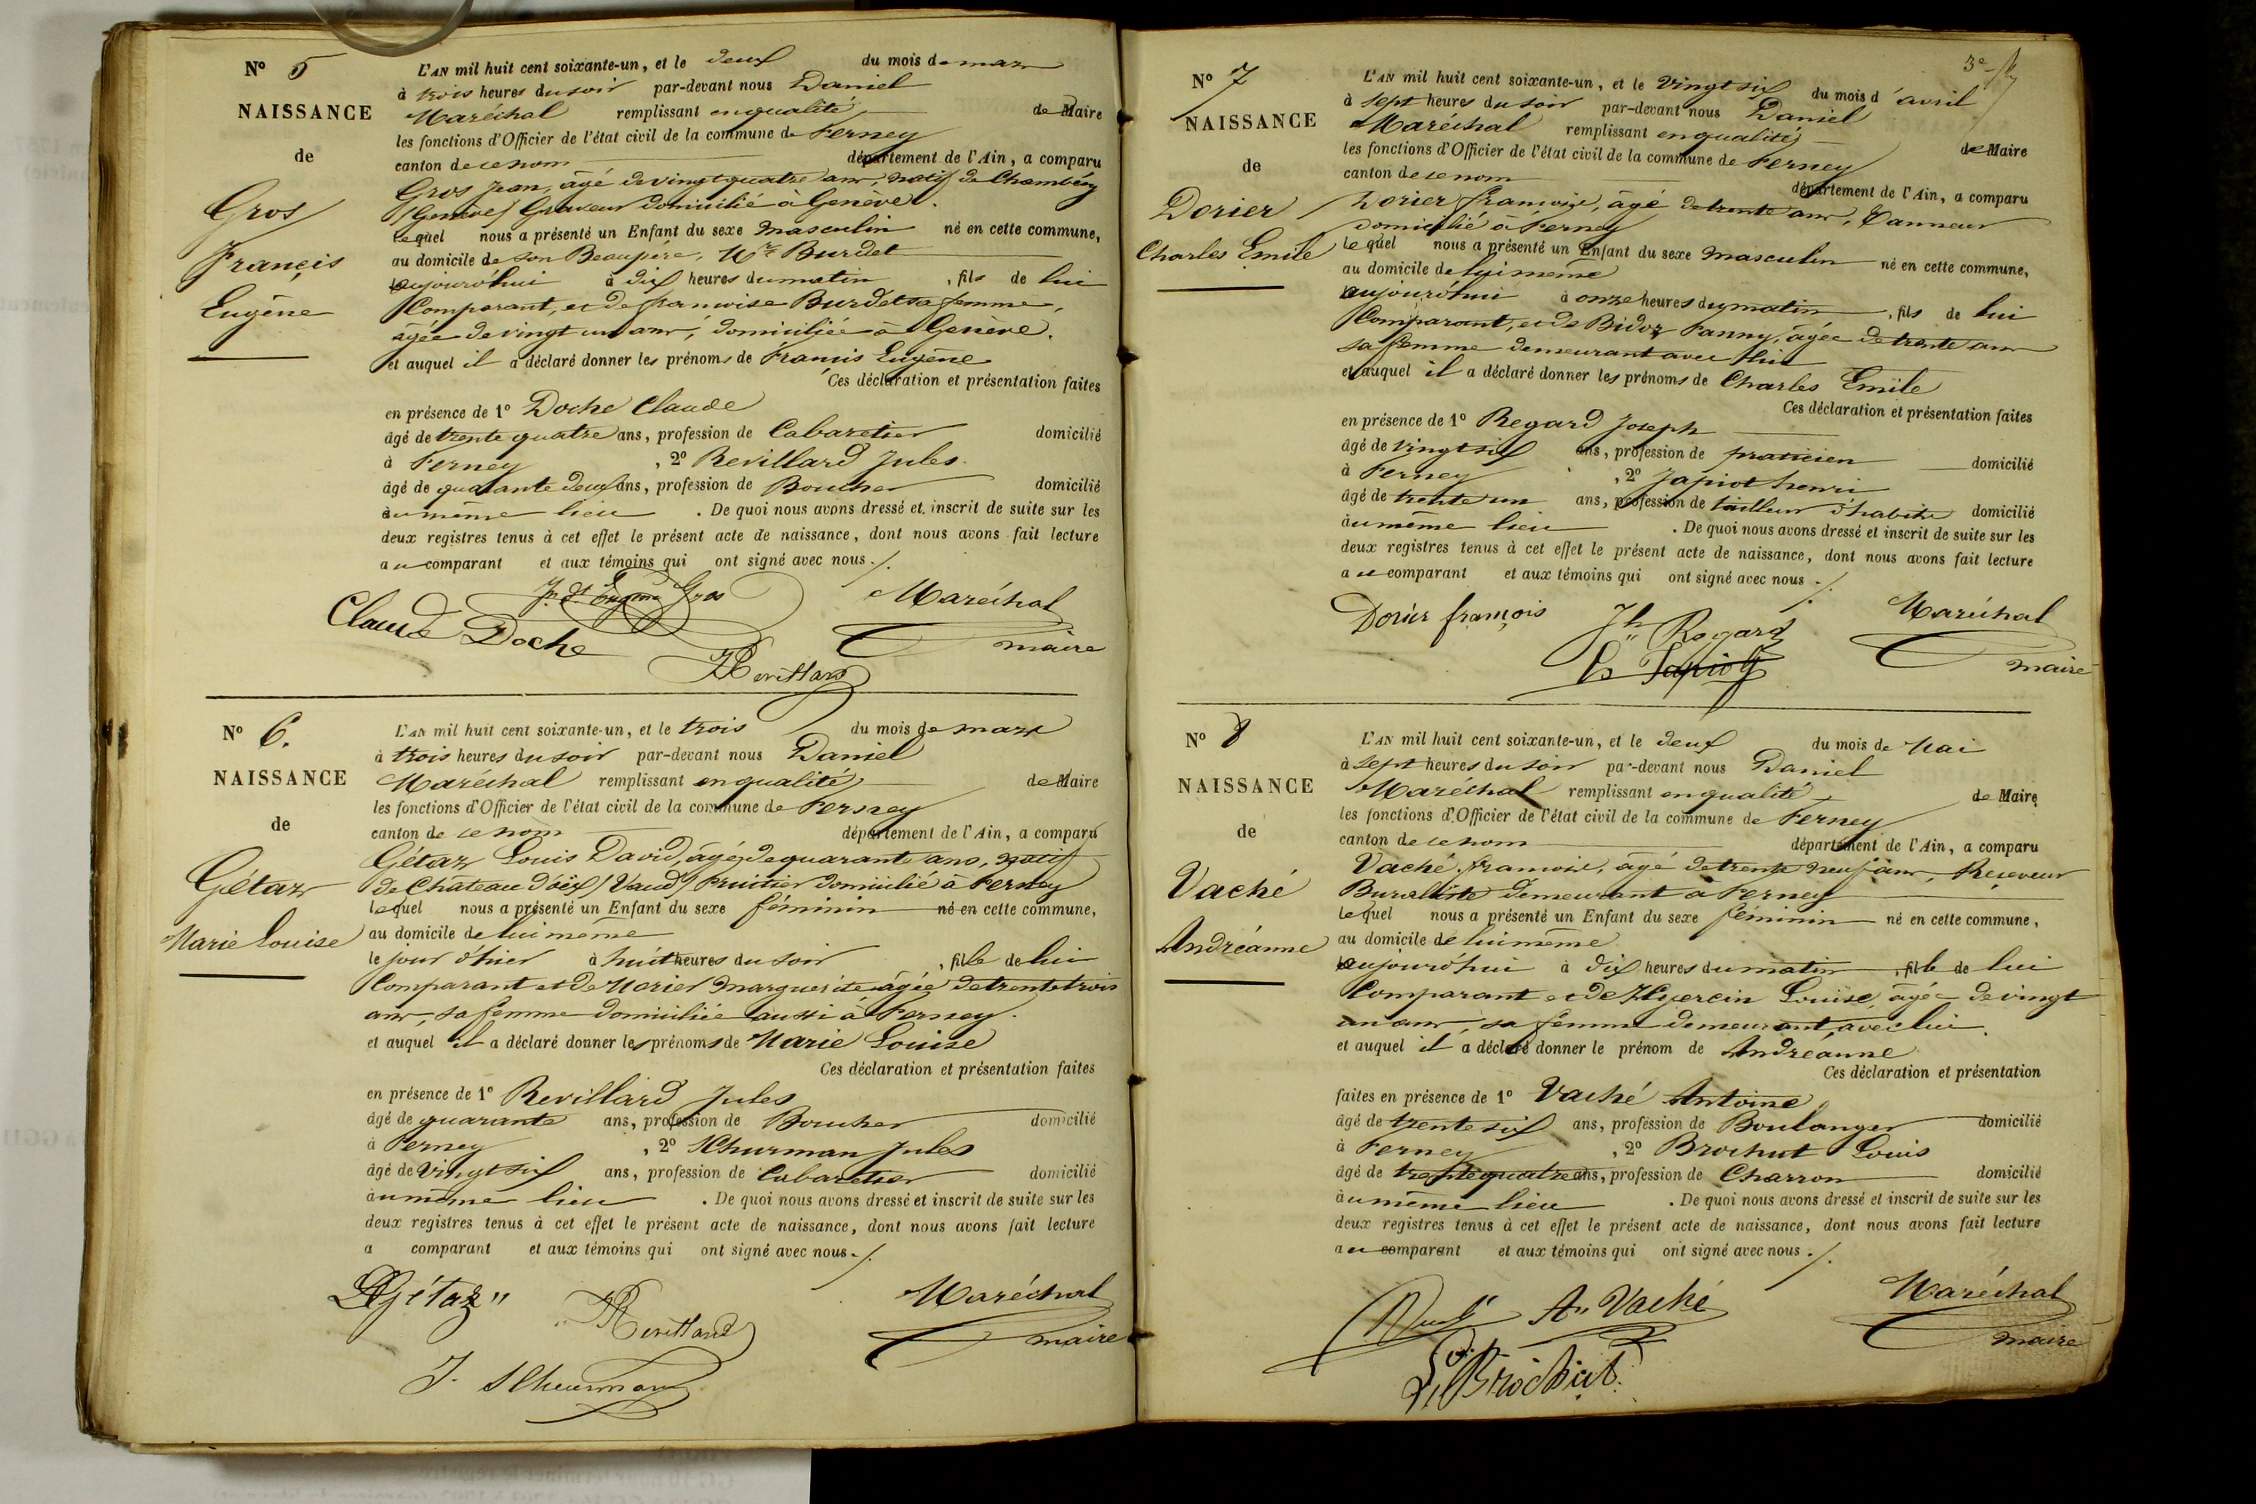 N° 5
NAISSANCE
de
Gros
Françis
Eugène
L'AN mil huit cent soixante-un, et le deux du mois de mars
à trois heures du soir par-devant nous Daniel
Maréchal remplissant en qualité de Maire
les fonctions d'Officier de l'état civil de la commune de Ferney
canton de ce nom département de l'Ain, a comparu
Gros Jean, âgé de vingt quatre ans, natif de Chambéry
(Genève) Graveur domicilié à Genève.
Lequel nous a présenté un Enfant du sexe masculin né en cette commune,
au domicile de son Beaupère, Mr Burdet
aujourd'hui à dix heures du matin, fils de lui
Comparant, et de françoise Burdet sa femme,
âgée de vingt un ans, domiciliée à Genève.
et auquel il a déclaré donner les prénoms de Françis Eugène
Ces déclaration et présentation faites
en présence de 1° Doche Claude
âgé de trente quatre ans, profession de Cabaretier domicilié
à Ferney, 2° Revillard Jules
âgé de quarante deux ans, profession de Boucher domicilié
au même lieu. De quoi nous avons dressé et inscrit de suite sur les
deux registres tenus à cet effet le présent acte de naissance, dont nous avons fait lecture
au comparant et aux témoins qui ont signé avec nous ./.
Eugène Gros Maréchal
Claude Doche maire
JRevillard
N° 6.
NAISSANCE
de
Gétaz
Marie Louise
L'AN mil huit cent soixante-un, et le trois du mois de mars
à trois heures du soir par-devant nous Daniel
Maréchal remplissant en qualité de Maire
les fonctions d'Officier de l'état civil de la commune de Ferney
canton de ce nom département de l'Ain, a comparu
Gétaz Louis David, âgé de quarante ans, natif
de Château d'oëx (Vaud) Fruitier domicilié à Ferney
Lequel nous a présenté un Enfant du sexe féminin né en cette commune,
au domicile de lui même
le jour d'hier à huit heures du soir, fille de lui
Comparant et de Marguerite âgée de trente trois
ans, sa femme domiciliée aussi à Ferney.
et auquel il a déclaré donner les prénoms de Marie Louise
Ces déclaration et présentation faites
en présence de 1° Revillard Jules
âgé de quarante ans, profession de Boucher domicilié
à Ferney, 2° Jules
âgé de vingt six ans, profession de Cabaretier domicilié
au même lieu. De quoi nous avons dressé et inscrit de suite sur les
deux registres tenus à cet effet le présent acte de naissance, dont nous avons fait lecture
a comparant et aux témoins qui ont signé avec nous ./.
Gétaz JRevillard Maréchal
maire
J.
N° 7
NAISSANCE
de
Dorier
Charles Emile
L'AN mil huit cent soixante-un, et le vingt six du mois d'avril
à sept heures du soir par-devant nous Daniel
Maréchal remplissant en qualité de Maire
les fonctions d'Officier de l'état civil de la commune de Ferney
canton de ce nom département de l'Ain, a comparu
Dorier françois, âgé de trente ans, Tanneur
domicilié à Ferney
Lequel nous a présenté un Enfant du sexe masculin né en cette commune,
au domicile de lui même
aujourd'hui à onze heures du matin, fils de lui
Comparant, et de Bidoz Fanny, âgée de trente ans
sa femme demeurant avec lui
et auquel il a déclaré donner les prénoms de Charles Emile
Ces déclaration et présentation faites
en présence de 1° Regard Joseph
âgé de vingt six ans, profession de praticien domicilié
à Ferney, 2° Japiot henri
âgé de trente un ans, profession de tailleur d'habits domicilié
au même lieu. De quoi nous avons dressé et inscrit de suite sur les
deux registres tenus à cet effet le présent acte de naissance, dont nous avons fait lecture
au comparant et aux témoins qui ont signé avec nous ./.
Dorier françois Jh Regard Maréchal
Japiot maire
N° 8
NAISSANCE
de
Vaché
Andréanne
L'AN mil huit cent soixante-un, et le deux du mois de Mai
à sept heures du soir par-devant nous Daniel
Maréchal remplissant en qualité de Maire
les fonctions d'Officier de l'état civil de la commune de Ferney
canton de ce nom département de l'Ain, a comparu
Vaché françois, âgé de trente neuf ans, Receveur
Buraliste demeurant à Ferney
Lequel nous a présenté un Enfant du sexe féminin né en cette commune,
au domicile de lui même
aujourd'hui à dix heures du matin, fille de lui
Comparant et de Louise, âgée de vingt
un ans, sa femme demeurant avec lui.
et auquel il a déclaré donner le prénom de Andréanne
Ces déclaration et présentation
faites en présence de 1° Vaché Antoine
âgé de trente six ans, profession de Boulanger domicilié
à Ferney, 2° Brochut Louis
âgé de trente quatre ans, profession de Charron domicilié
au même lieu. De quoi nous avons dressé et inscrit de suite sur les
deux registres tenus à cet effet le présent acte de naissance, dont nous avons fait lecture
au comparant et aux témoins qui ont signé avec nous ./.
Vaché An Vaché Maréchal
maire
Brochut